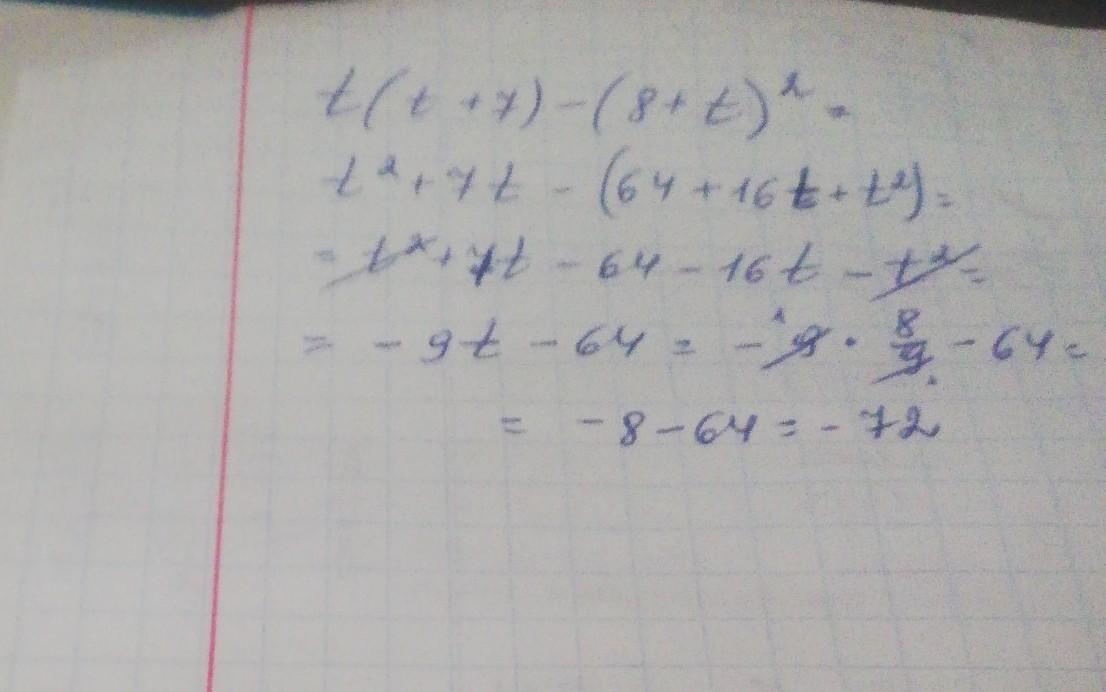 t(t+7)-(8+t)²=
t²+7t-(64+16t+t²)=
=t²+7t-64-16t-t²=
=-9t-64=-¹9·8/9-64=
=-8-64=-72